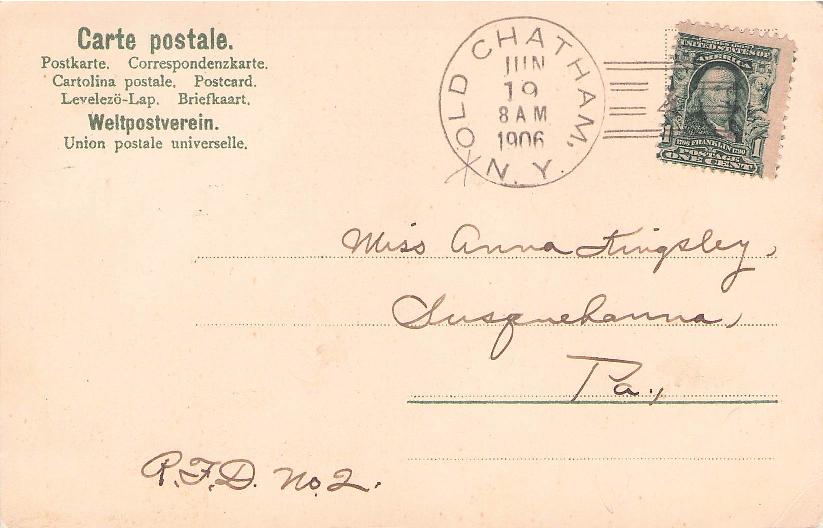 Carte postale.
Postkarte. Correspondenzkarte.
Cartolina postale. Postcard.
Levelezö-Lap. Briefkaart.
Weltpostverein.
Union postale universelle.
OLD CHATHAM,
JUN
19
8 AM
1906
N. Y.
UNITED STATES OF
AMERICA
FRANKLIN
1 POSTAGE 1
ONE CENT
Miss Anna Kingsley,
Susquehanna,
Pa.,
R.F.D. No. 2.